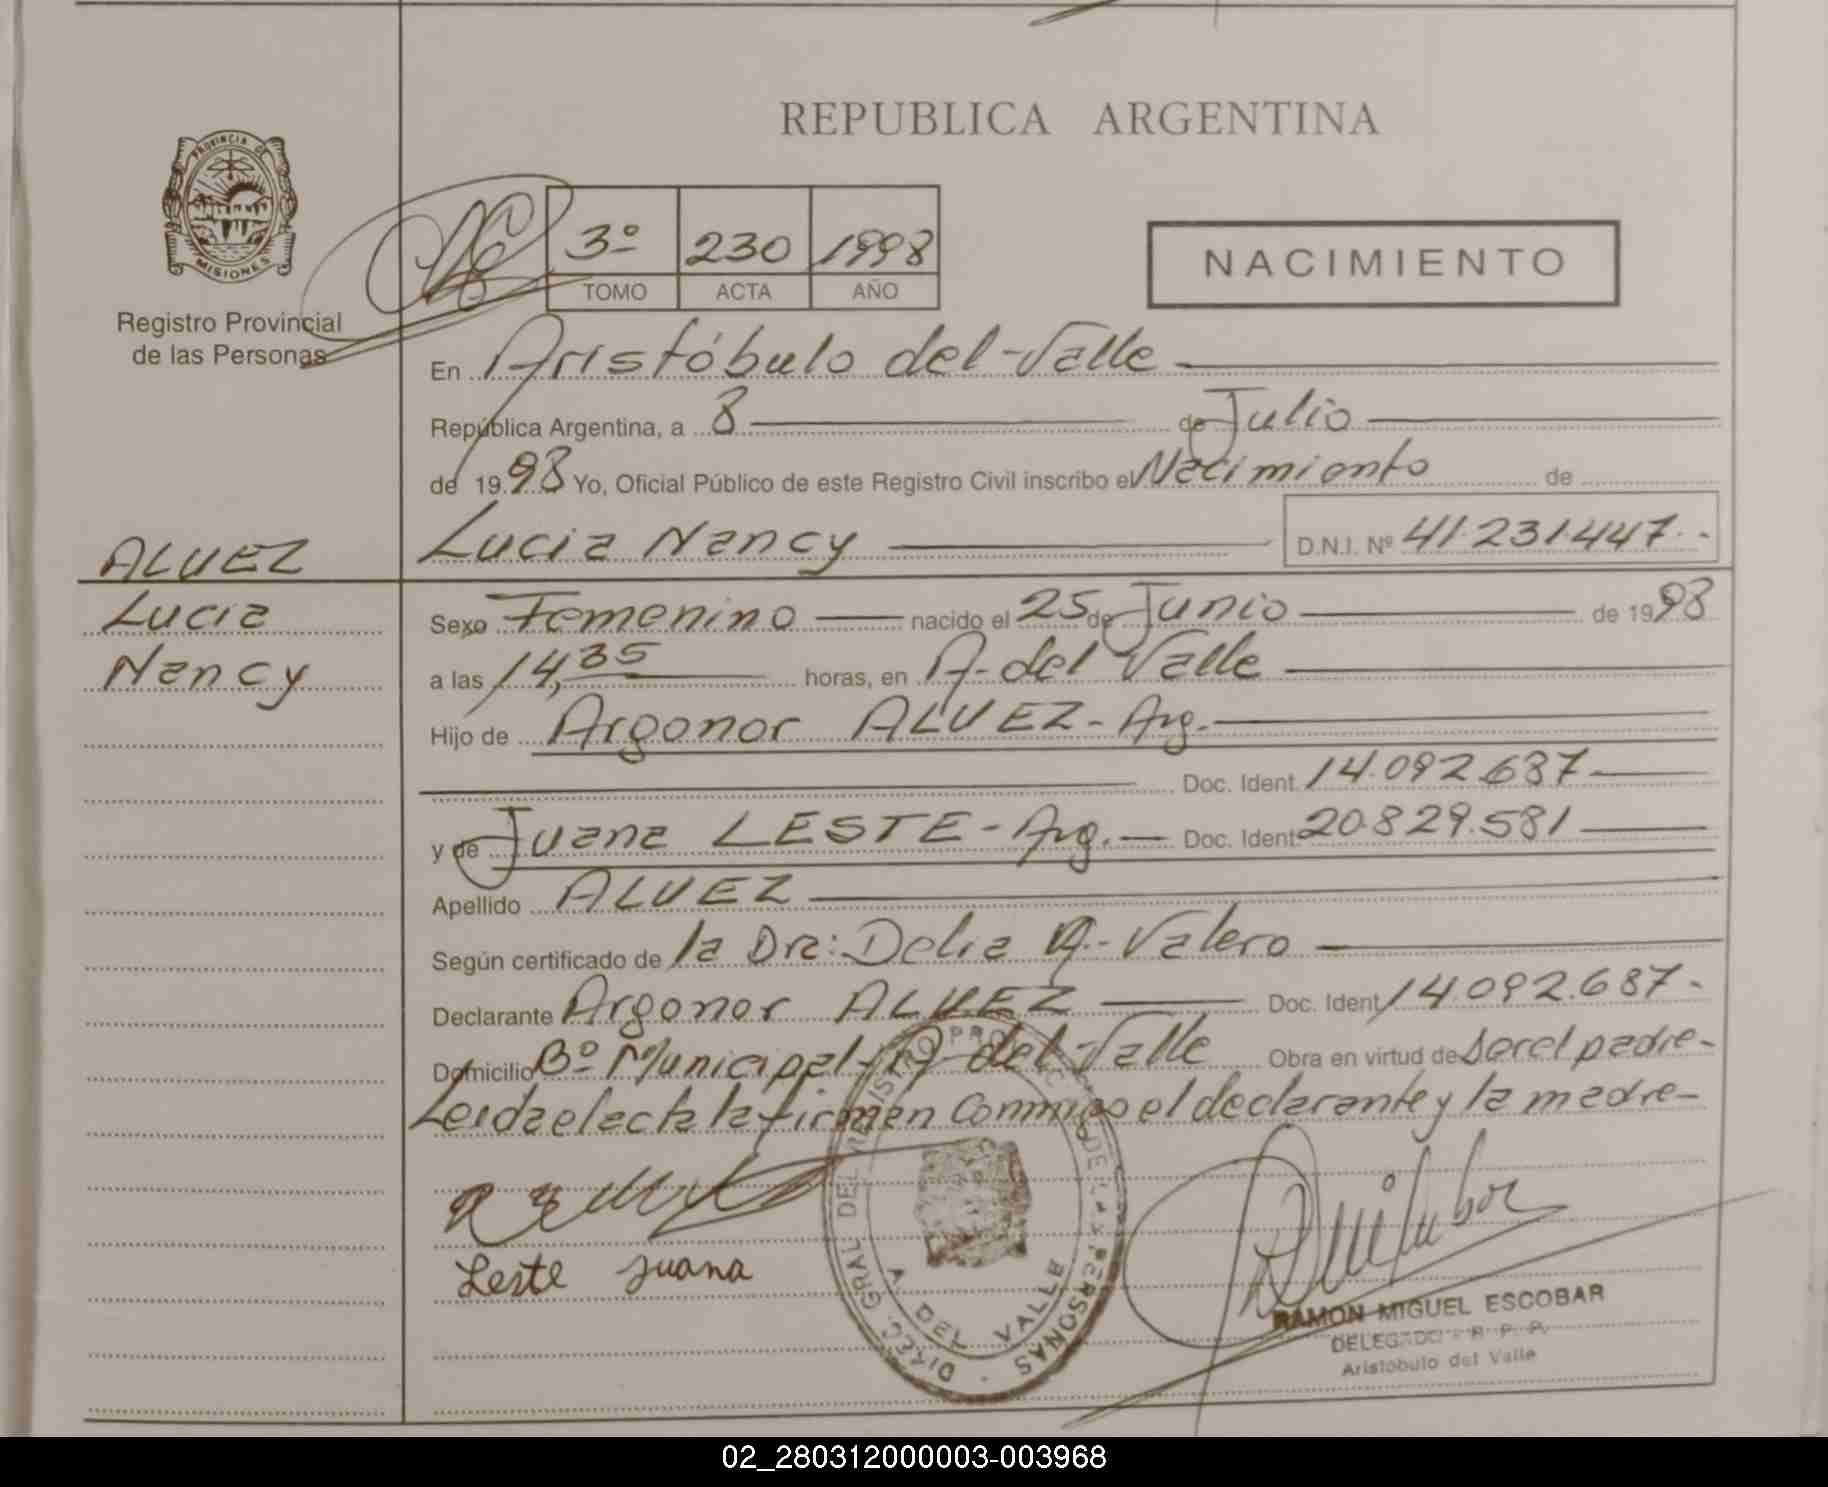 REPUBLICA ARGENTINA
PROVINCIA DE
MISIONES
Registro Provincial
de las Personas
3º 230 1998
TOMO ACTA AÑO
NACIMIENTO
En Aristóbulo del Valle
República Argentina, a 8 de Julio
de 1998 Yo, Oficial Público de este Registro Civil inscribo el Nacimiento de
Lucia Nancy D.N.I. Nº 41.231.447.-
ALVEZ
Lucia
Nancy
Sexo Femenino nacido el 25 de Junio de 1998
a las 14,35 horas, en A. del Valle
Hijo de Argonor ALVEZ - Arg.
Doc. Ident. 14.092.687
y de Juana LESTE - Arg. Doc. Ident. 20.829.581
Apellido ALVEZ
Según certificado de la Dra: Delia A. Valero
Declarante Argonor ALVEZ Doc. Ident. 14.092.687.
Domicilio Bº Municipal - A. del Valle Obra en virtud de ser el padre-
Leida el acta la firman conmigo el declarante y la madre-
Leste Juana
DIREC. GRAL DEL REGISTRO PROVINC. DE LAS PERSONAS
A. DEL VALLE
RAMON MIGUEL ESCOBAR
DELEGADO R. P. P.
Aristóbulo del Valle
02_280312000003-003968